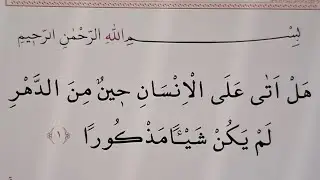 بِسْمِ اللهِ الرَّحْمٰنِ الرَّحٖيمِ
هَلْ اَتٰى عَلَى الْاِنْسَانِ حٖينٌ مِنَ الدَّهْرِ
لَمْ يَكُنْ شَيْـًٔا مَذْكُورًا ﴿١﴾